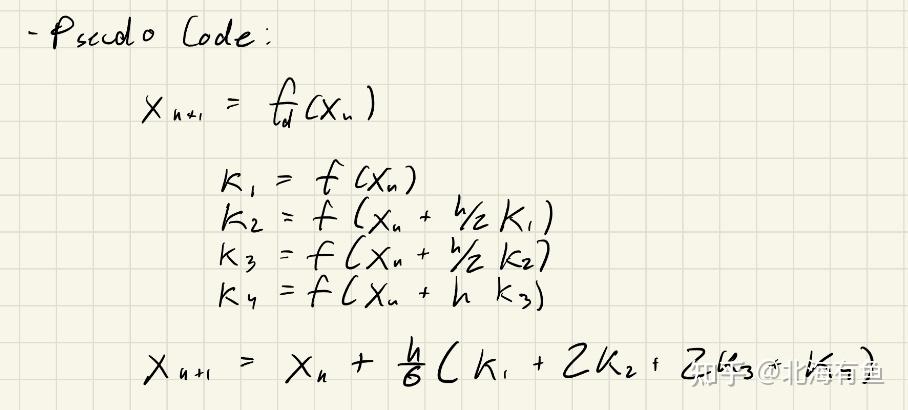 - Pseudo Code:
x_{n+1} = f_d(x_n)
K_1 = f(x_n)
K_2 = f(x_n + h/2 K_1)
K_3 = f(x_n + h/2 K_2)
K_4 = f(x_n + h K_3)
x_{n+1} = x_n + h/6 (K_1 + 2K_2 + 2K_3 + K_4)
知乎 @北海有鱼